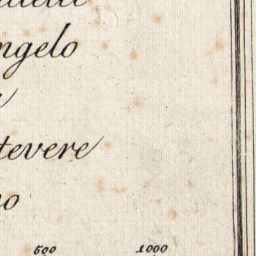 ngelo
tevere
no
500 1000